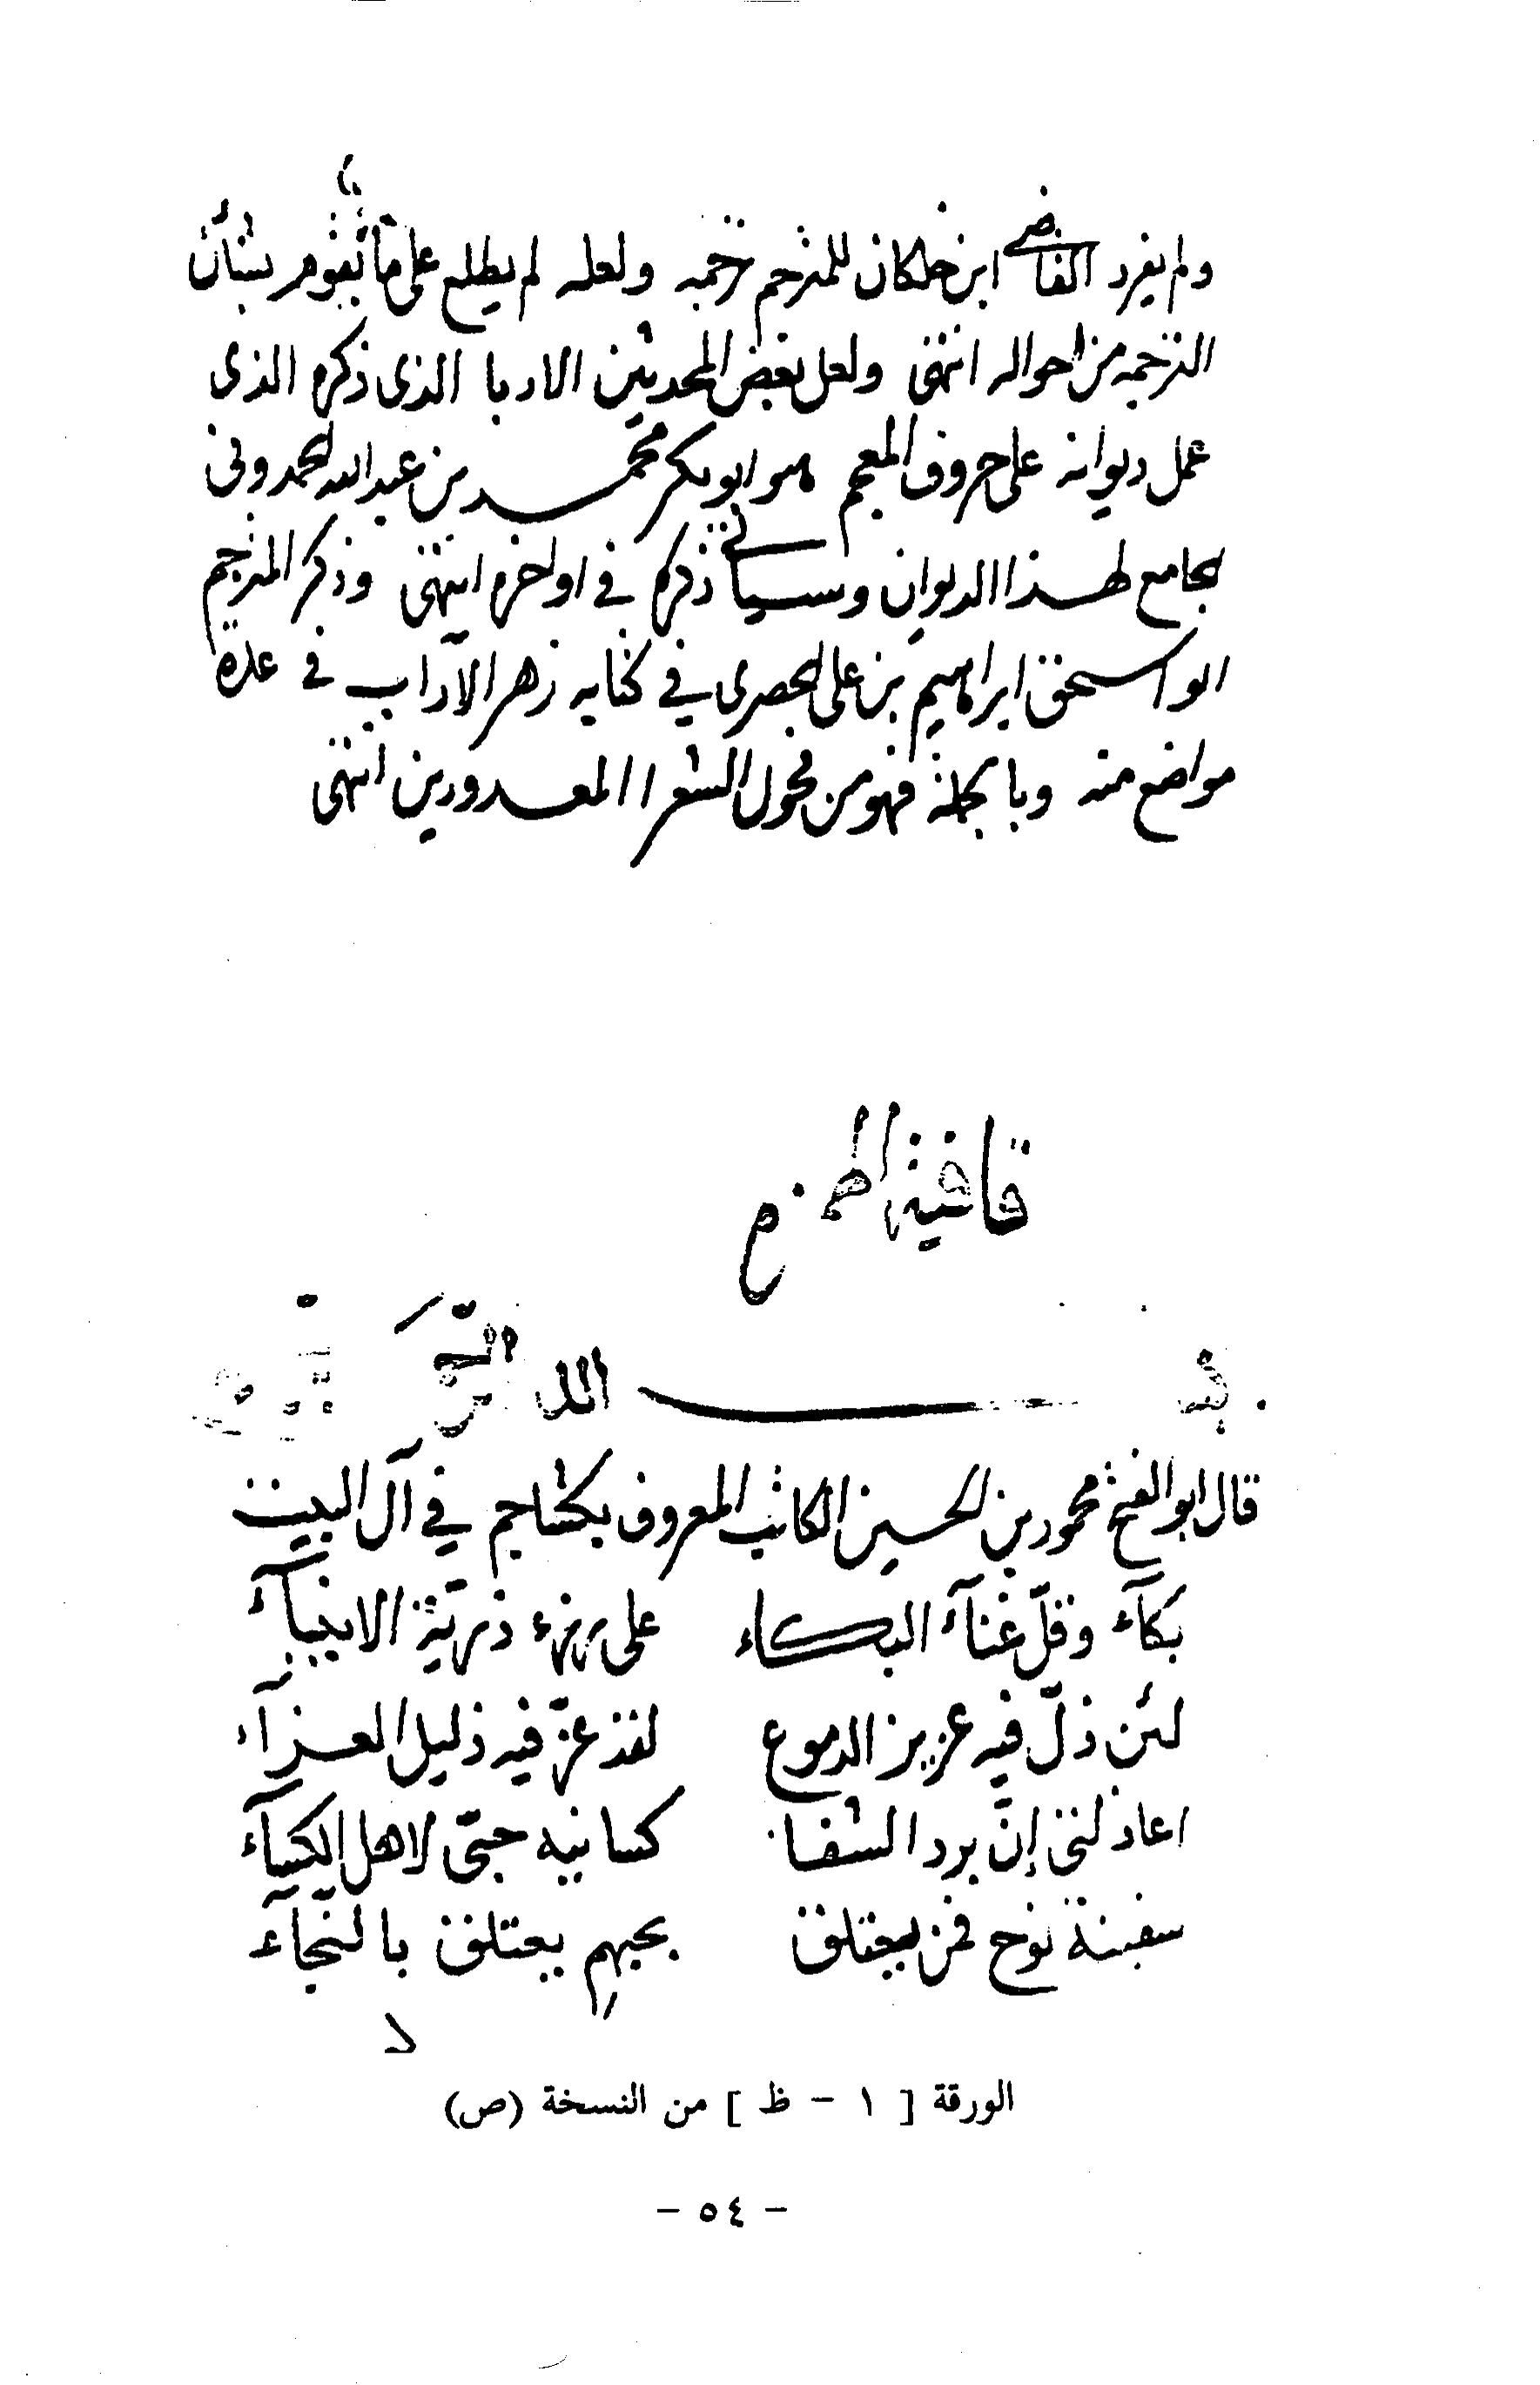 ولم يفرد القاضي ابن خلكان للمترجم ترجمه ولعله لم يطلع على ما يقوم بشأن
الترجمه من احواله انتهى ولعل بعض المحدثين الادبا الذى ذكره الذى
عمل ديوانه على حروف المعجم هو ابو بكر محمد بن عبد الله الحمدونى
الجامع لهذا الديوان وسياتي ذكره في اواخره انتهى وذكر المترجم
ابو اسحق ابراهيم بن على الحصرى في كتابه زهر الآداب في عدة
مواضع منه وبالجملة فهو من فحول الشعرا المعدودين انتهى
قافية الهمزه
بسم الله الرحمن
قال ابو الفتح محمود بن الحسين الكاتب المعروف بكشاجم في آل البيت
بكآء وقلّ غنآء البكاء على رزء ذريّة الانبيآء
لئن ذلّ فيه عزيز الدموع لقد عزّ فيه ذليل العزآء
اعاذلتى إنّ برد الشفا كسانيه حبّى لاهل الكسآء
سفينة نوح فمن يعتلق بحبهم يعتلق بالنّجآء
الورقة [ ١ - ظ ] من النسخة (ص)
- ٥٤ -